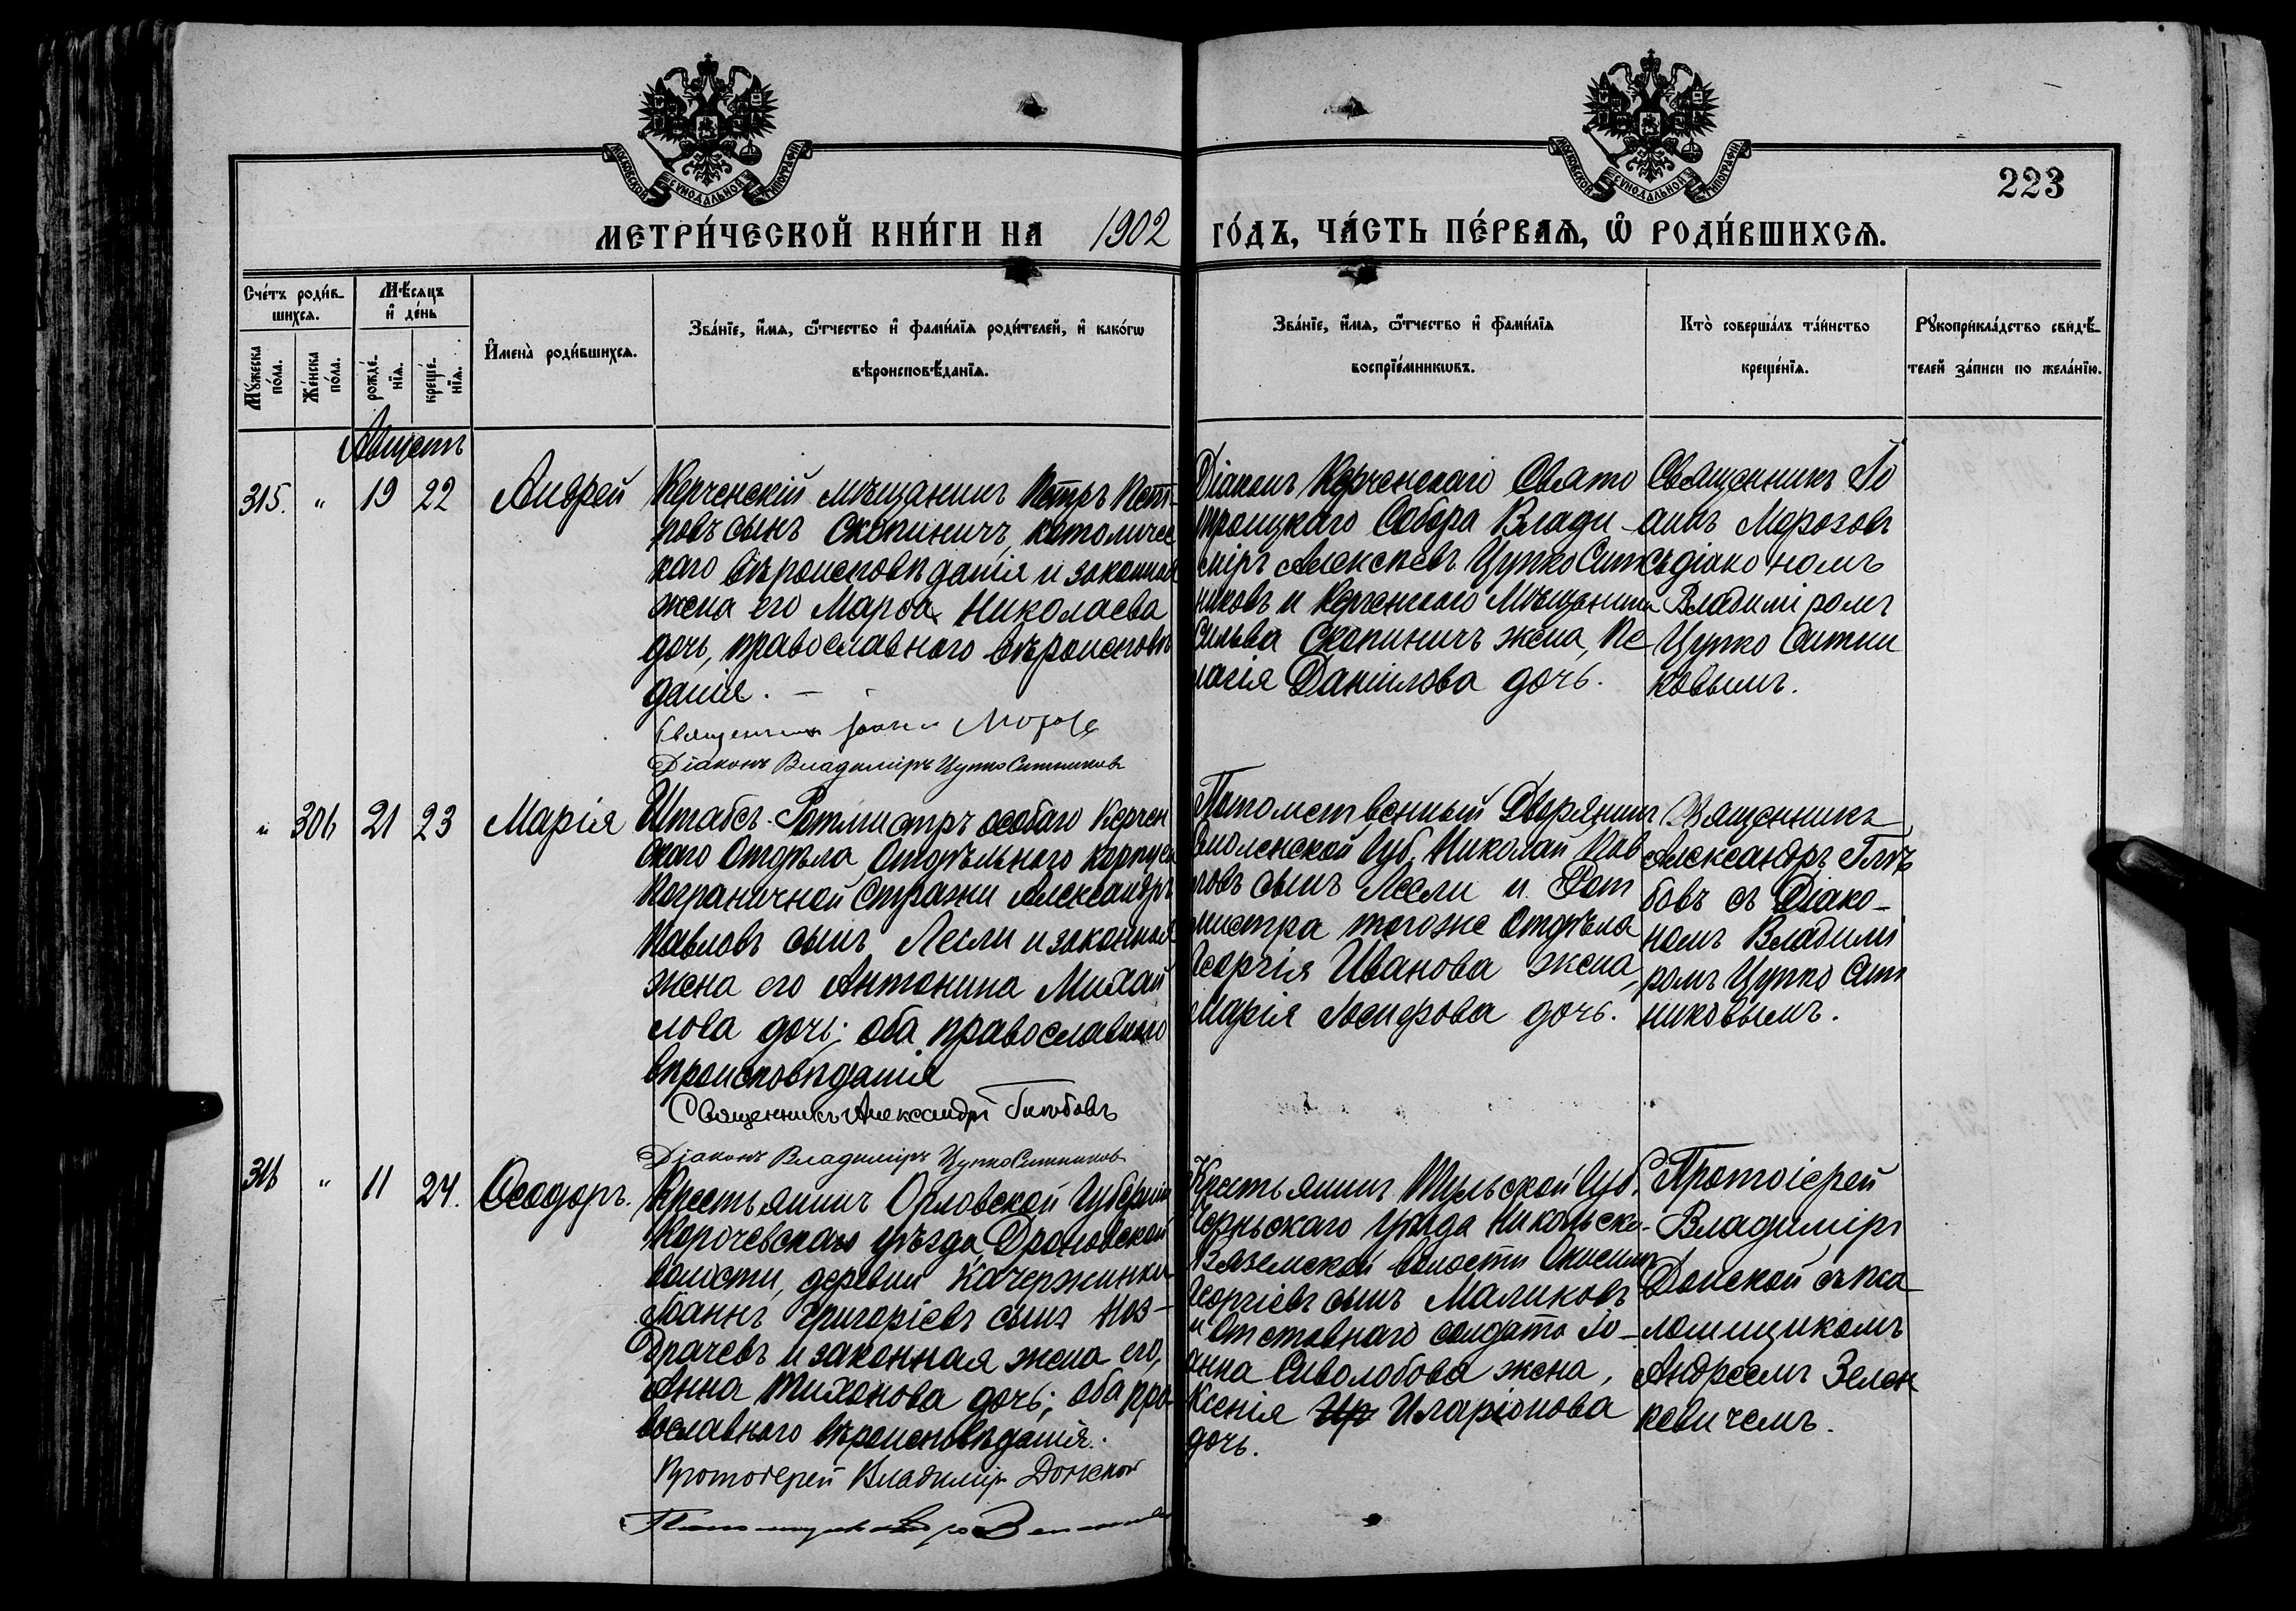 МОСКОВСКОЙ СѴНОДАЛЬНОЙ ТИПОГРАФІИ
МОСКОВСКОЙ СѴНОДАЛЬНОЙ ТИПОГРАФІИ
223
МЕТРИ́ЧЕСКОЙ КНИ́ГИ НА 1902 ГО́ДЪ, ЧА́СТЬ ПЕ́РВАѦ, Ѡ РОДИ́ВШИХСѦ.
Сче́тъ роди́в-
шихсѧ.
Мѣ́сѧцъ
и҆ де́нь
Мꙋ́жеска по́ла.
Же́нска по́ла.
рожде́-нїѧ.
креще́-нїѧ.
И҆мена̀ роди́вшихсѧ.
Зва́нїе, и҆́мѧ, ѻ҆́тчество и҆ фами́лїѧ роди́телей, и҆ како́гѡ
вѣроисповѣ́данїѧ.
Зва́нїе, и҆́мѧ, ѻ҆́тчество и҆ фами́лїѧ
воспрїе́мникѡвъ.
Кто̀ соверша́лъ та́инство
креще́нїѧ.
Рꙋкоприкла́дство свидѣ́-
телей за́писи по жела́нїю.
Августъ
315. " 19 22 Андрей
Керченскій мѣщанинъ Петръ Пет-
ровъ сынъ Скопиничъ, католичес
каго вѣроисповѣданія и законная
жена его Марѳа Николаева
дочь, православнаго вѣроисповѣ
данія.
Священникъ Іоаннъ Морозов
Діаконъ Владиміръ Цупко Ситниковъ
Діаконъ Керченскаго Свято
троицкаго Собора Влади-
міръ Алексѣевъ Цупко Сит
никовъ и Керченскаго Мѣщанина
Сильва Скопиничъ жена, Пе
лагія Даніилова дочь.
Священникъ Іо
аннъ Морозовъ
съ діакономъ
Владиміромъ
Цупко Ситни
ковымъ.
" 306 21 23 Марія
Штабсъ-Ротмистръ особаго Керчен
скаго Отдѣла, Отдѣльнаго Корпуса
Пограничной Стражи Александръ
Павловъ сынъ Лесли и законная
жена его Антонина Михай
лова дочь; оба православнаго
вѣроисповѣданія
Священникъ Александръ Глѣбовъ
Діаконъ Владиміръ Цупко Ситниковъ
Потомственный Дворянинъ
Смоленской Губ. Николай Пав
ловъ сынъ Лесли и Рот
мистра тогоже Отдѣла
Георгія Иванова жена,
Марія Іосифова дочь.
Священникъ
Александръ Глѣ
бовъ съ Діако-
номъ Владимі
ромъ Цупко Сит
никовымъ.
316 " 11 24. Ѳеодоръ.
Крестьянинъ Орловской Губерніи
Карачевскаго уѣзда, Дроновской
волости, деревни Качержинки
Іоаннъ Григоріевъ сынъ Ноз-
драчевъ и законная жена его,
Анна Тихонова дочь; оба пра-
вославнаго вѣроисповѣданія.
Протоіерей Владиміръ Донской
Крестьянинъ Тульской Губ.
Чернскаго уѣзда Никольско-
Вяземской волости Онисимъ
Георгіевъ сынъ Маликовъ
и Отставнаго солдата Іо-
анна Сиволобова жена,
Ксенія Ир Иларіонова
дочь.
Протоіерей
Владиміръ
Донской съ пса
ломщикомъ
Андреемъ Зелен
кевичемъ.